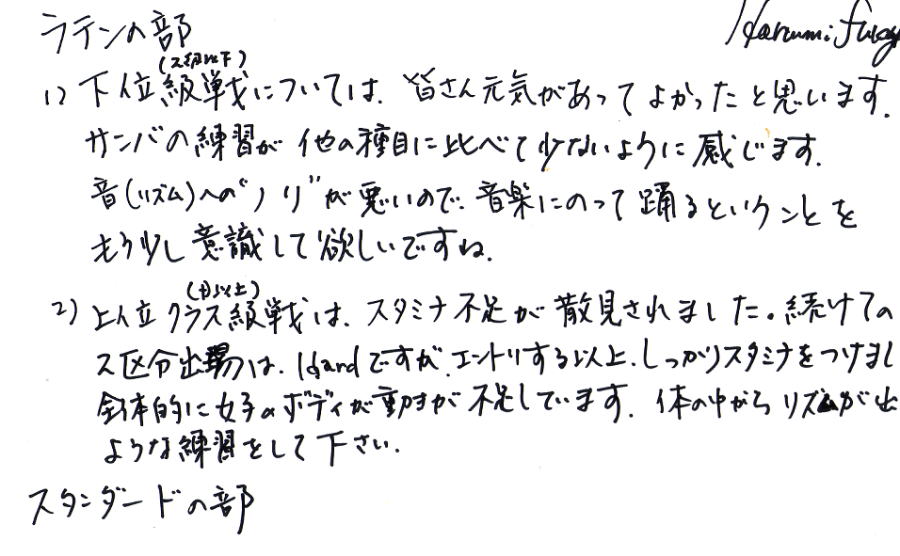 ラテンの部
Harumi
(2級以下)
1) 下位級戦については、皆さん元気があってよかったと思います.
サンバの練習が他の種目に比べて少ないように感じます.
音(リズム)への“ノリ”が悪いので、音楽にのって踊るということを
もう少し意識して欲しいですね.
(以上)
2) 上位クラス級戦は、スタミナ不足が散見されました。続けての
2区分出場は、Hardですが、エントリする以上、しっかりスタミナをつけまし
全体的に女子のボディが動きが不足しています. 体の中からリズムが出
ような練習をして下さい.
スタンダードの部